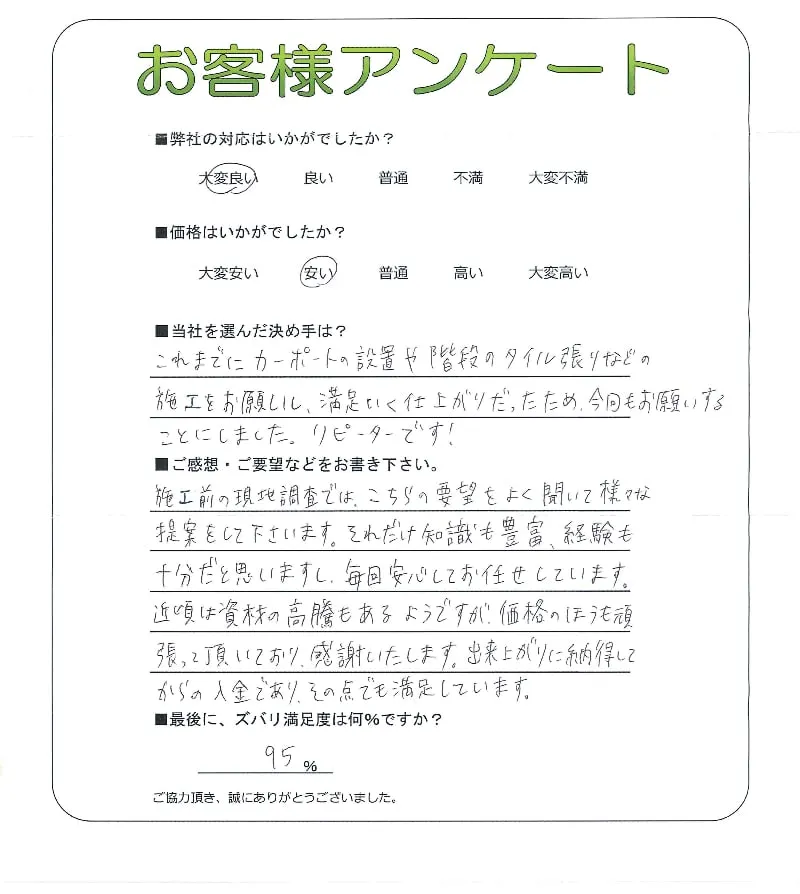 お客様アンケート
■弊社の対応はいかがでしたか？
大変良い 良い 普通 不満 大変不満
■価格はいかがでしたか？
大変安い 安い 普通 高い 大変高い
■当社を選んだ決め手は？
これまでに カーポートの設置や階段のタイル張りなどの
施工をお願いし、満足いく仕上がりだったため、今回もお願いする
ことにしました。リピーターです！
■ご感想・ご要望などをお書き下さい。
施工前の現地調査では、こちらの要望をよく聞いて様々な
提案をして下さいます。それだけ知識も豊富、経験も
十分だと思いますし、毎回安心してお任せしています。
近頃は資材の高騰もあるようですが、価格のほうも頑
張って頂いており、感謝いたします。出来上がりに納得して
からの入金であり、その点でも満足しています。
■最後に、ズバリ満足度は何%ですか？
95 %
ご協力頂き、誠にありがとうございました。